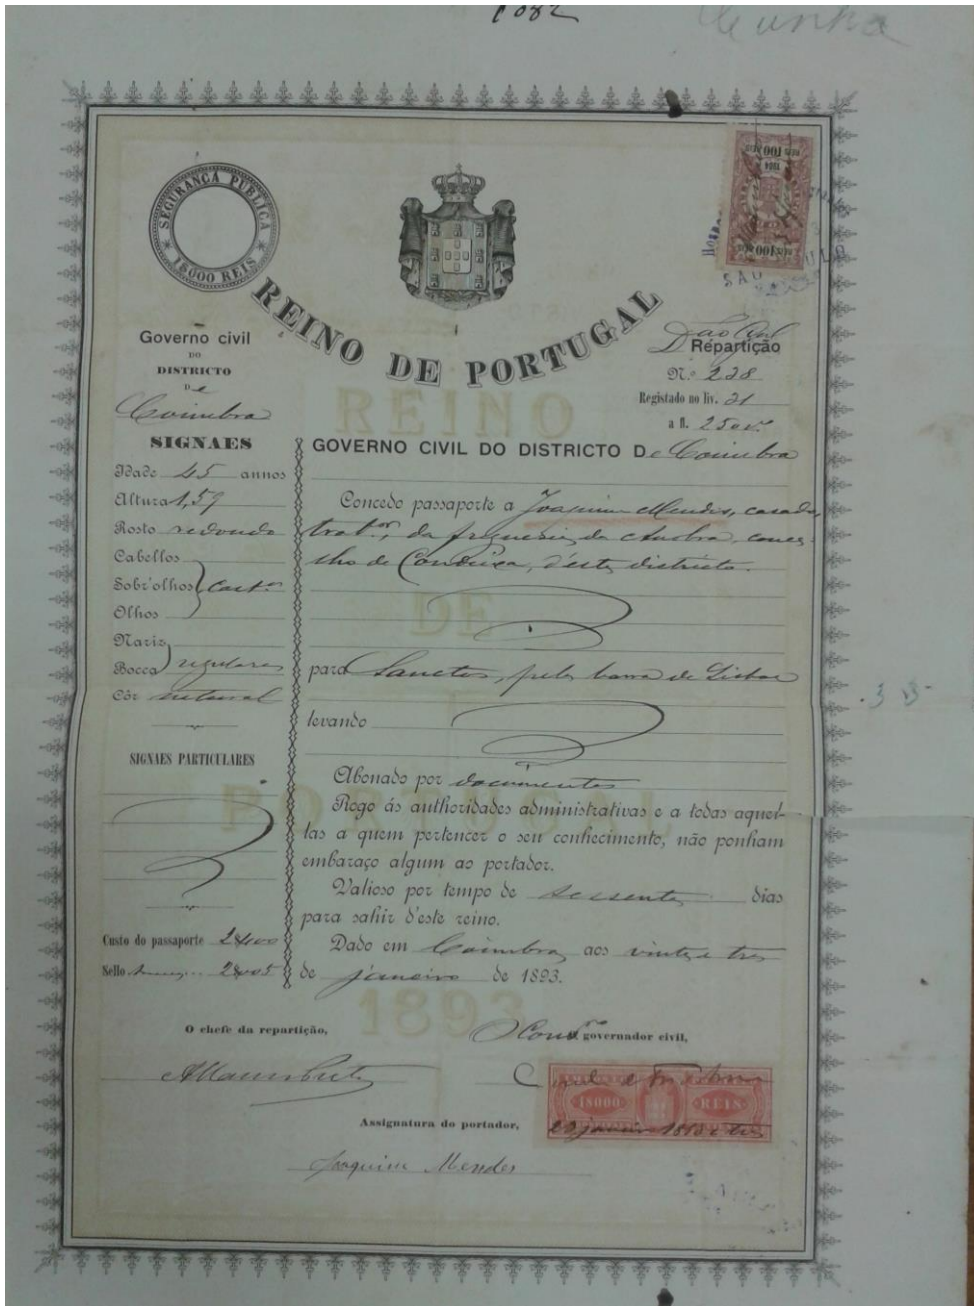 Cunha
SEGURANCA PUBLICA
18000 REIS
REIS 100 REIS
1884
REIS 100 REIS
SÃO PAULO
REINO DE PORTUGAL
Governo civil
DO
DISTRICTO
De
Coimbra
Repartição
N.º 228
Registado no liv. 21
a fl. 250 v.º
SIGNAES
Idade 45 annos
Altura 1,59
Rosto redondo
Cabellos
Sobr'olhos cast.os
Olhos
Nariz
Bocca regulares
Côr natural
SIGNAES PARTICULARES
Custo do passaporte 2$000
Sello 2$005
GOVERNO CIVIL DO DISTRICTO De Coimbra
Concedo passaporte a Joaquim Mendes, casado,
trab.or, da freguesia da Anobra, conce-
lho de Condeixa, d'este districto.
para Sanctos, pela barra de Lisboa
levando
Abonado por documentos
Rogo ás authoridades administrativas e a todas aquel-
las a quem pertencer o seu conhecimento, não ponham
embaraço algum ao portador.
Valioso por tempo de sessenta dias
para sahir d'este reino.
Dado em Coimbra aos vinte e tres
de janeiro de 1893.
REINO
DE
PORTUGAL
1893
O chefe da repartição,
O Cons.ro governador civil,
18000 REIS
23 janeiro 1893 e tres
Assignatura do portador,
Joaquim Mendes